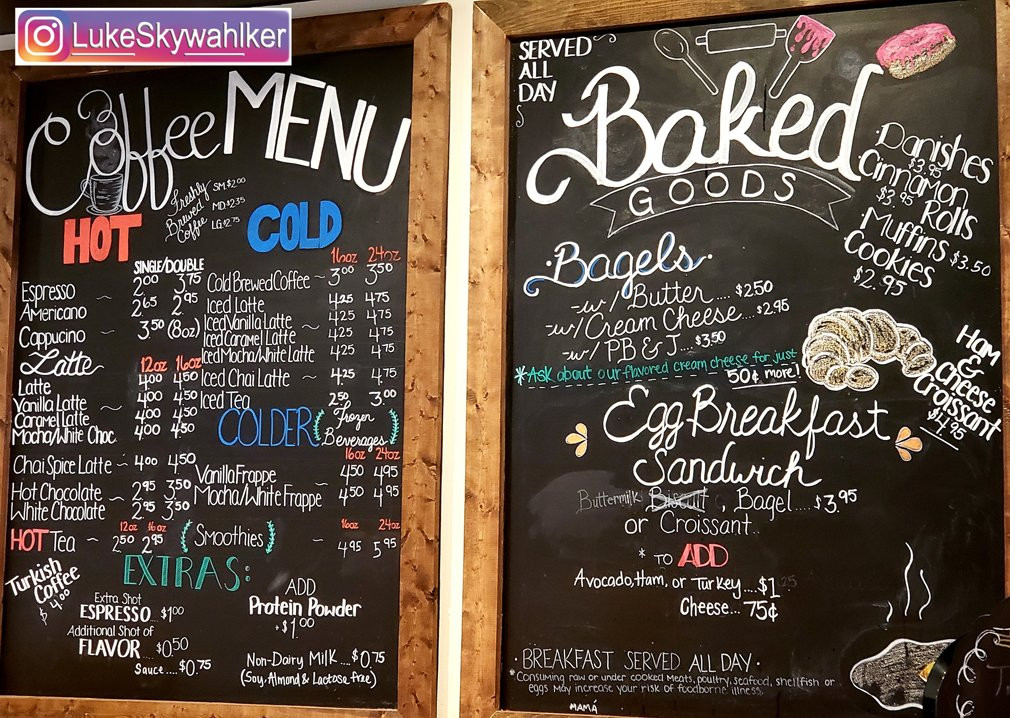 LukeSkywahlker
Coffee MENU
Freshly Brewed Coffee
SM. $2.00
MD. $2.35
LG. $2.75
HOT
SINGLE/DOUBLE
Espresso ~ 2.00 3.75
Americano 2.65 2.95
Cappucino ~ 3.50 (8oz)
Latte
12oz 16oz
Latte 4.00 4.50
Vanilla Latte ~ 4.00 4.50
Caramel Latte 4.00 4.50
Mocha/White Choc. 4.00 4.50
Chai Spice Latte ~ 4.00 4.50
Hot Chocolate ~ 2.95 3.50
White Chocolate 2.95 3.50
12oz 16oz
HOT Tea ~ 2.50 2.95
COLD
16oz 24oz
Cold Brewed Coffee ~ 3.00 3.50
Iced Latte 4.25 4.75
Iced Vanilla Latte ~ 4.25 4.75
Iced Caramel Latte 4.25 4.75
Iced Mocha/White Latte 4.25 4.75
Iced Chai Latte ~ 4.25 4.75
Iced Tea 2.50 3.00
COLDER (Frozen
Beverages)
16oz 24oz
Vanilla Frappe 4.50 4.95
Mocha/White Frappe ~ 4.50 4.95
16oz 24oz
(Smoothies) ~ 4.95 5.95
Turkish
Coffee
$4.00
EXTRAS:
Extra Shot
ESPRESSO...$1.00
Additional Shot of
FLAVOR....$0.50
Sauce...$0.75
ADD
Protein Powder
+$1.00
Non-Dairy Milk....$0.75
(Soy, Almond & Lactose free)
SERVED
ALL
DAY
Baked
GOODS
Danishes
$3.95
Cinnamon
$3.95 Rolls
Muffins $3.50
Cookies
$2.95
Bagels
-w/ Butter.... $2.50
-w/ Cream Cheese....$2.95
-w/ PB & J....$3.50
*Ask about our flavored cream cheese for just
50¢ more!
Ham
&
Cheese
Croissant
$4.95
Egg Breakfast
Sandwich
Buttermilk Biscuit, Bagel....$3.95
or Croissant..
* TO ADD
Avocado, Ham, or Turkey....$1.25
Cheese...75¢
·BREAKFAST SERVED ALL DAY·
*Consuming raw or under cooked meats, poultry, seafood, shellfish or
eggs may increase your risk of foodborne illness.
MAMÁ